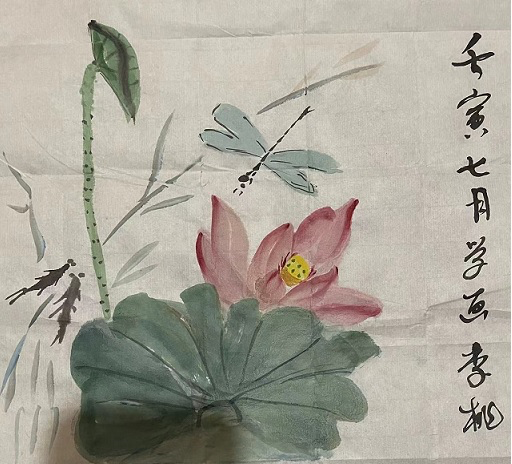 壬寅七月学画李桃